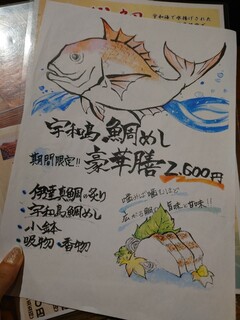 宇和島 鯛めし
期間限定!! 豪華膳 2,600円
・伊達真鯛の炙り
・宇和島鯛めし
・小鉢
・吸物・香物
噛めば噛むほど
広がる鯛の旨味と甘味!!